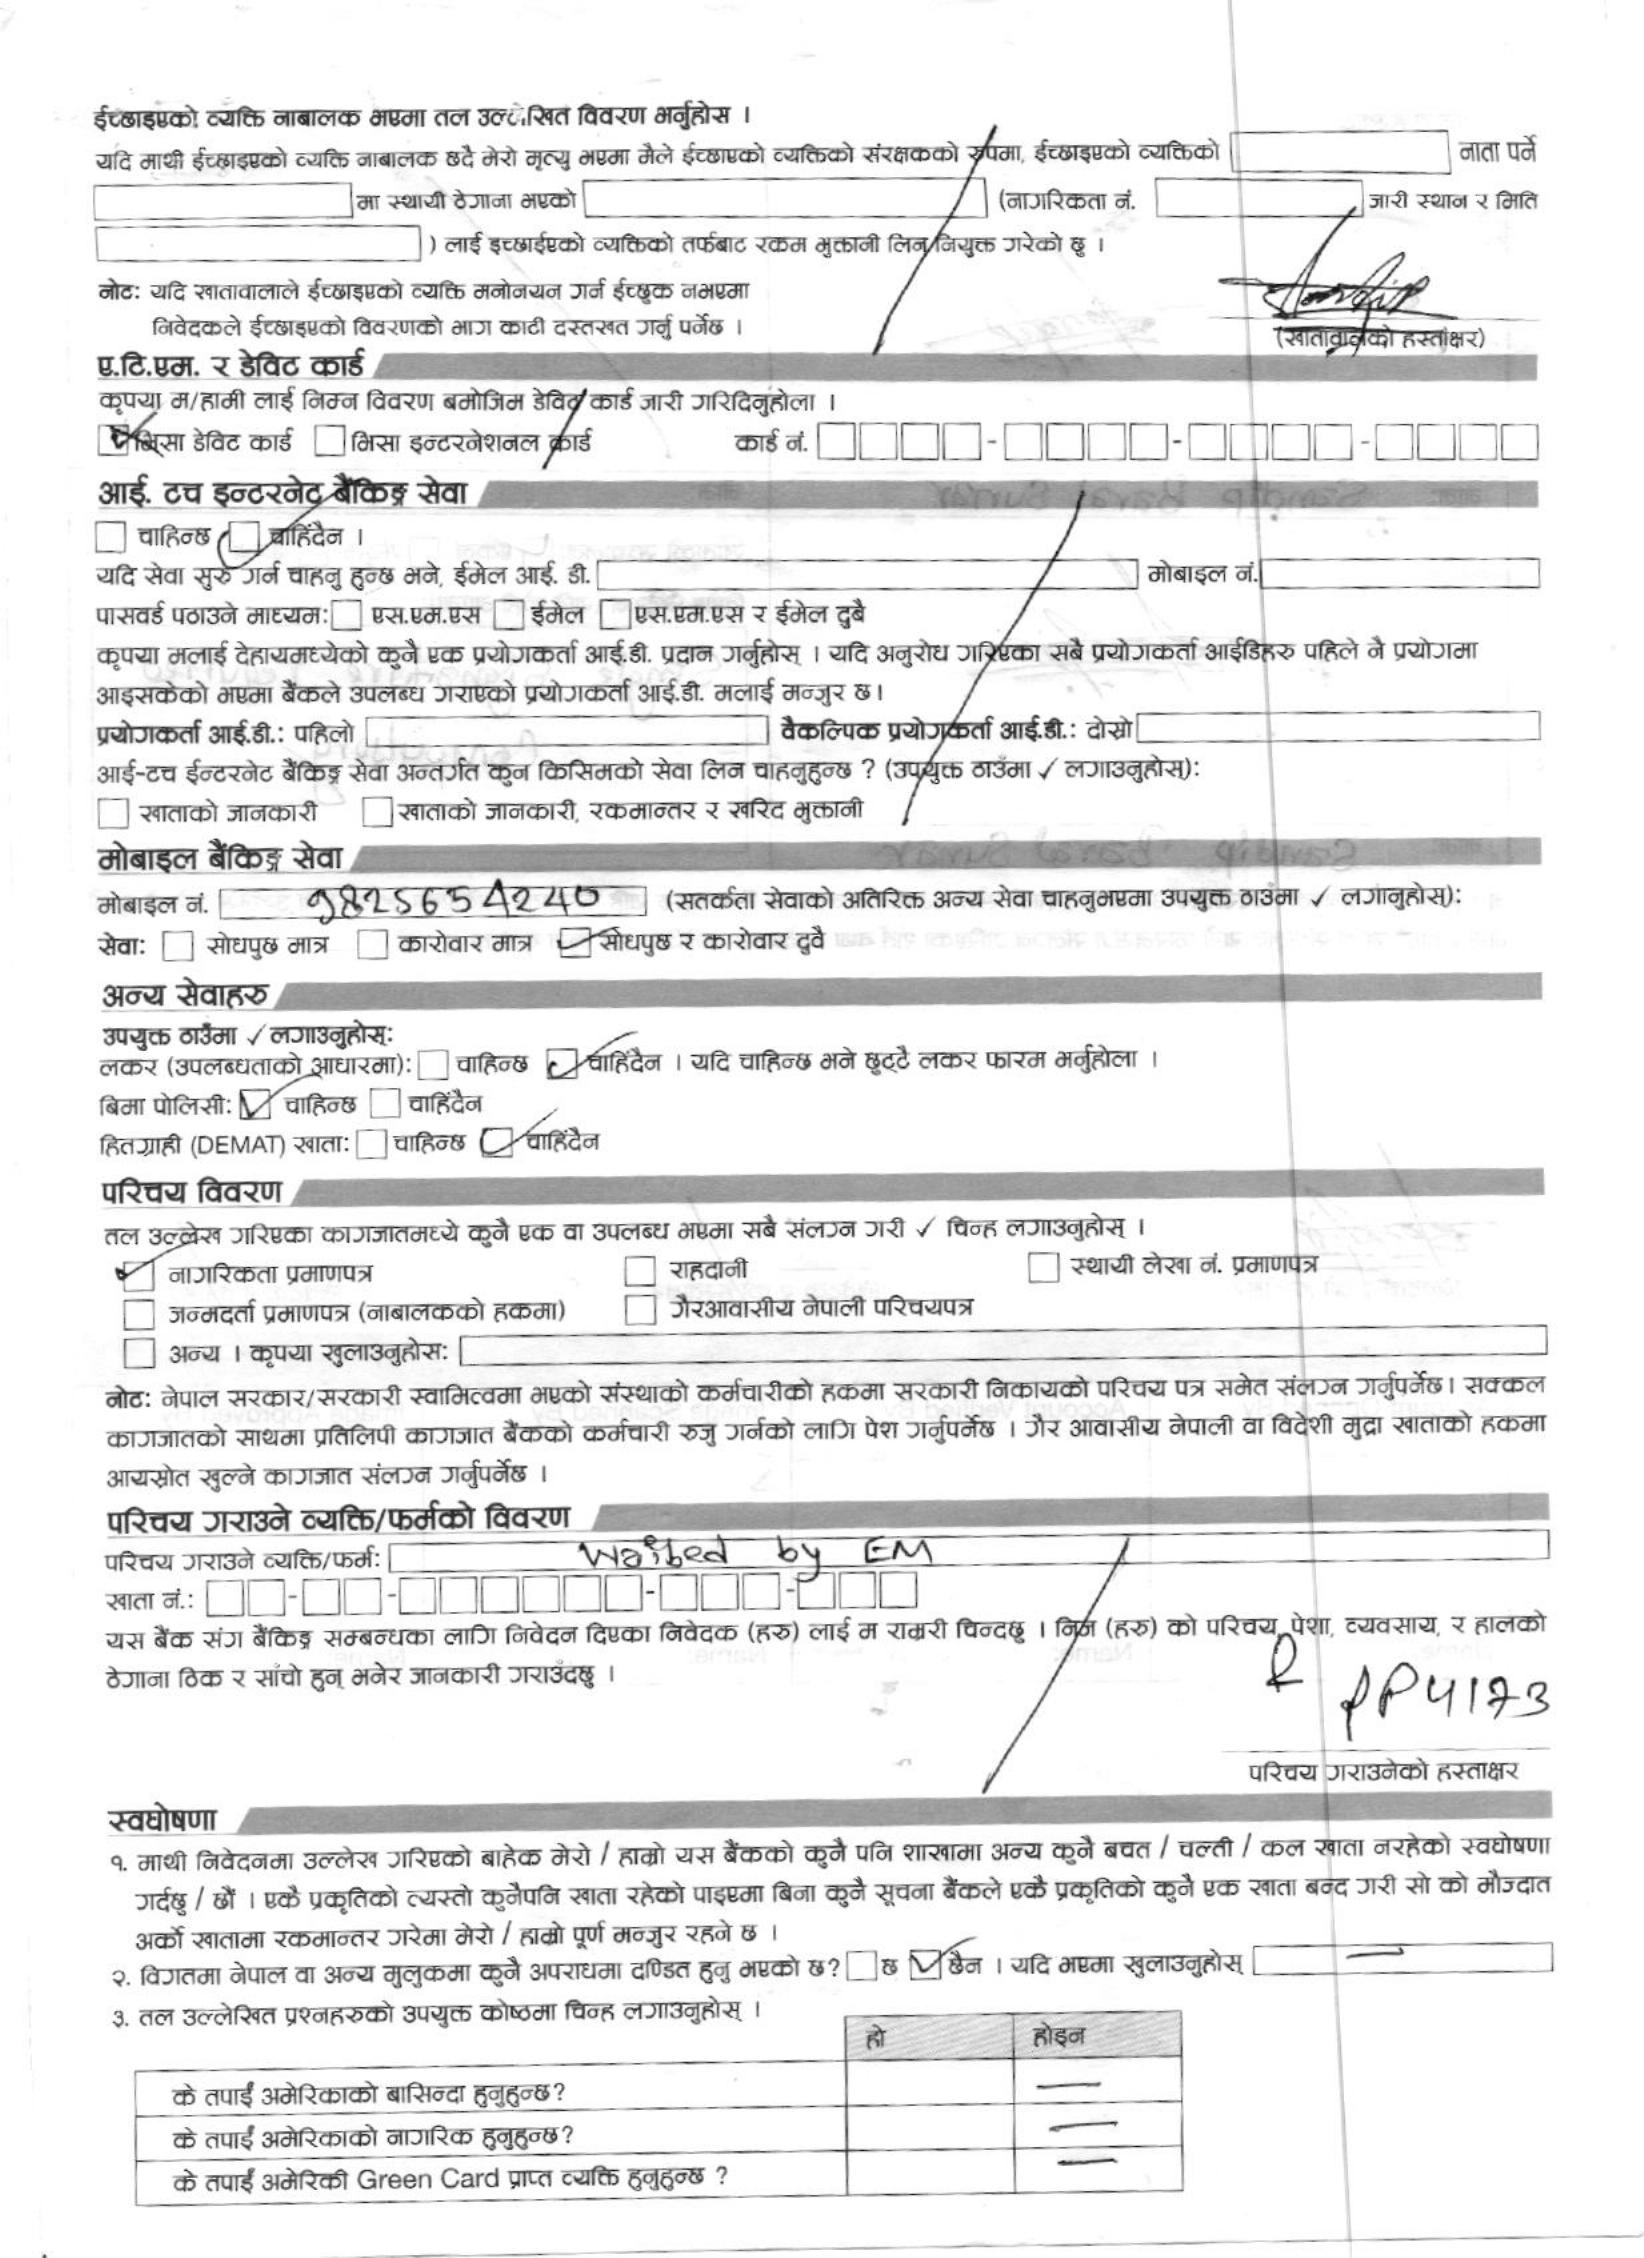 ईच्छाइएको व्यक्ति नाबालक भएमा तल उल्लेखित विवरण भर्नुहोस ।
यदि माथी ईच्छाइएको व्यक्ति नाबालक छदै मेरो मृत्यु भएमा मैले ईच्छाएको व्यक्तिको संरक्षकको रुपमा, ईच्छाइएको व्यक्तिको नाता पर्ने
मा स्थायी ठेगाना भएको (नागरिकता नं. जारी स्थान र मिति
) लाई इच्छाईएको व्यक्तिको तर्फबाट रकम भुक्तानी लिन नियुक्त गरेको छु ।
नोट: यदि खातावालाले ईच्छाइएको व्यक्ति मनोनयन गर्न ईच्छुक नभएमा
निवेदकले ईच्छाइएको विवरणको भाग काटी दस्तखत गर्नु पर्नेछ ।
(खातावालको हस्ताक्षर)
ए.टि.एम. र डेविट कार्ड
कृपया म/हामी लाई निम्न विवरण बमोजिम डेविट कार्ड जारी गरिदिनुहोला ।
भिसा डेविट कार्ड भिसा इन्टरनेशनल कार्ड कार्ड नं. - - -
आई. टच इन्टरनेट बैंकिङ्ग सेवा
चाहिन्छ चाहिंदैन ।
यदि सेवा सुरु गर्न चाहनु हुन्छ भने, ईमेल आई. डी. मोबाइल नं.
पासवर्ड पठाउने माध्यम: एस.एम.एस ईमेल एस.एम.एस र ईमेल दुबै
कृपया मलाई देहायमध्येको कुनै एक प्रयोगकर्ता आई.डी. प्रदान गर्नुहोस् । यदि अनुरोध गरिएका सबै प्रयोगकर्ता आईडिहरु पहिले नै प्रयोगमा
आइसकेको भएमा बैंकले उपलब्ध गराएको प्रयोगकर्ता आई.डी. मलाई मन्जुर छ।
प्रयोगकर्ता आई.डी.: पहिलो वैकल्पिक प्रयोगकर्ता आई.डी.: दोस्रो
आई-टच ईन्टरनेट बैंकिङ्ग सेवा अन्तर्गत कुन किसिमको सेवा लिन चाहनुहुन्छ ? (उपयुक्त ठाउँमा ✓ लगाउनुहोस्):
खाताको जानकारी खाताको जानकारी, रकमान्तर र खरिद भुक्तानी
मोबाइल बैंकिङ्ग सेवा
मोबाइल नं. 9825654240 (सतर्कता सेवाको अतिरिक्त अन्य सेवा चाहनुभएमा उपयुक्त ठाउँमा ✓ लगाउनुहोस्):
सेवा: सोधपुछ मात्र कारोवार मात्र सोधपुछ र कारोवार दुवै
अन्य सेवाहरु
उपयुक्त ठाउँमा ✓ लगाउनुहोस्:
लकर (उपलब्धताको आधारमा): चाहिन्छ चाहिंदैन । यदि चाहिन्छ भने छुट्टै लकर फारम भर्नुहोला ।
बिमा पोलिसी: चाहिन्छ चाहिंदैन
हितग्राही (DEMAT) खाता: चाहिन्छ चाहिंदैन
परिचय विवरण
तल उल्लेख गरिएका कागजातमध्ये कुनै एक वा उपलब्ध भएमा सबै संलग्न गरी ✓ चिन्ह लगाउनुहोस् ।
नागरिकता प्रमाणपत्र राहदानी स्थायी लेखा नं. प्रमाणपत्र
जन्मदर्ता प्रमाणपत्र (नाबालकको हकमा) गैरआवासीय नेपाली परिचयपत्र
अन्य । कृपया खुलाउनुहोस:
नोट: नेपाल सरकार/सरकारी स्वामित्वमा भएको संस्थाको कर्मचारीको हकमा सरकारी निकायको परिचय पत्र समेत संलग्न गर्नुपर्नेछ। सक्कल
कागजातको साथमा प्रतिलिपी कागजात बैंकको कर्मचारी रुजु गर्नको लागि पेश गर्नुपर्नेछ । गैर आवासीय नेपाली वा विदेशी मुद्रा खाताको हकमा
आयस्रोत खुल्ने कागजात संलग्न गर्नुपर्नेछ ।
परिचय गराउने व्यक्ति/फर्मको विवरण
परिचय गराउने व्यक्ति/फर्म: Waibed by EM
खाता नं.: - - - -
यस बैंक संग बैंकिङ्ग सम्बन्धका लागि निवेदन दिएका निवेदक (हरु) लाई म राम्ररी चिन्दछु । निज (हरु) को परिचय, पेशा, व्यवसाय, र हालको
ठेगाना ठिक र सांचो हुन् भनेर जानकारी गराउँदछु ।
PP4173
परिचय गराउनेको हस्ताक्षर
स्वघोषणा
१. माथी निवेदनमा उल्लेख गरिएको बाहेक मेरो / हाम्रो यस बैंकको कुनै पनि शाखामा अन्य कुनै बचत / चल्ती / कल खाता नरहेको स्वघोषणा
गर्दछु / छौं । एकै प्रकृतिको त्यस्तो कुनैपनि खाता रहेको पाइएमा बिना कुनै सूचना बैंकले एकै प्रकृतिको कुनै एक खाता बन्द गरी सो को मौज्दात
अर्को खातामा रकमान्तर गरेमा मेरो / हाम्रो पूर्ण मन्जुर रहने छ ।
२. विगतमा नेपाल वा अन्य मुलुकमा कुनै अपराधमा दण्डित हुनु भएको छ? छ छैन । यदि भएमा खुलाउनुहोस्
३. तल उल्लेखित प्रश्नहरुको उपयुक्त कोष्ठमा चिन्ह लगाउनुहोस् ।
हो होइन
के तपाईं अमेरिकाको बासिन्दा हुनुहुन्छ?
के तपाईं अमेरिकाको नागरिक हुनुहुन्छ?
के तपाईं अमेरिकी Green Card प्राप्त व्यक्ति हुनुहुन्छ ?